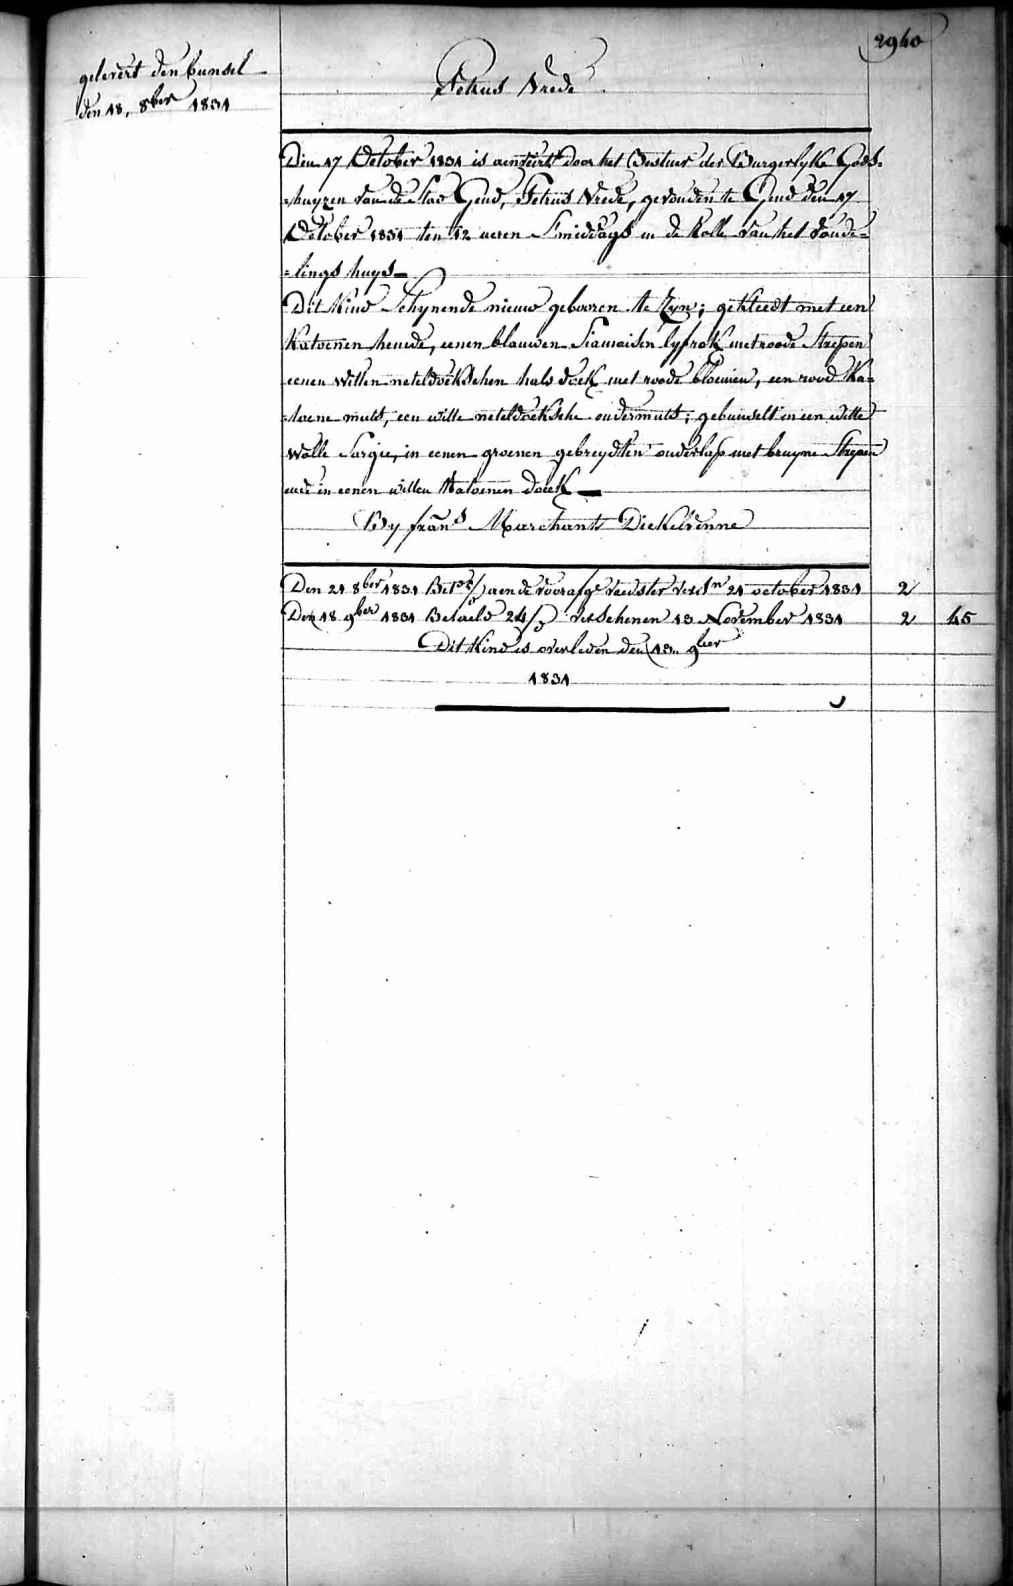 2940
gelevert den bunsel
den 18, 8ber 1831
Petrus Vrede
Den 17 October 1831 is aenveirt door het Bestuur der Burgerlyke Gods=
=huyzen van de stad Gend, Petrus Vrede, gevonden te Gend den 17
October 1831 ten 12 ueren Smiddags in de Rolle van het vonde=
=lings huys
Dit Kind Schynende nieuw gebooren te Zyn; gekleedt met een
Katoenen hemde, eenen blauwen Siamoisen lyfrok met roode Strepen
eenen witten neteldoekschen hals doek met roode bloemen, een rood Ka=
=toene muts, een witte neteldoeksche ondermuts; gebunselt in een witte
wolle Sargie, in eenen groenen gebreydten onderlap met bruyne Strepen
ende in eenen witten Katoenen doek
By frans Marchants Dickelvenne
Den 21 8ber 1831 aen de voorzge 21 october 1831 2
Den 18 9ber 1831 Betaeld 24/ verschenen 13 November 1831 2 45
Dit Kind is overleden den 13 9ber
1831